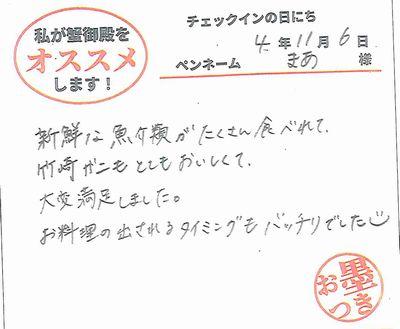 私が蟹御殿を
オススメ
します！
チェックインの日にち
4年11月6日
ペンネーム まあ 様
新鮮な魚介類がたくさん食べれて、
竹崎ガニもとてもおいしくて、
大変満足しました。
お料理の出されるタイミングもバッチリでした
お墨つき